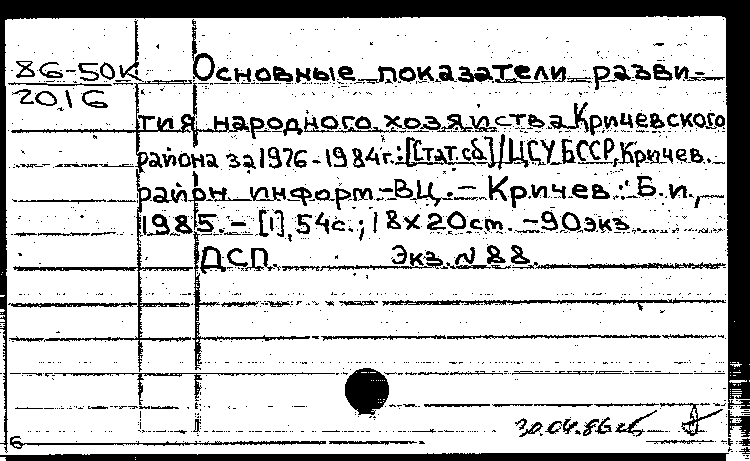 86-50К Основные показатели разви-
2016
тия народного хозяйства Кричевского
района за 1976-1984г.: [Стат.сб] / ЦСУ БССР, Кричев.
район информ-ВЦ. - Кричев: Б.и.,
1985. - [1], 54с.; 18х20ст. - 90экз.
ДСП. Экз. N 88.
30.04.86
6